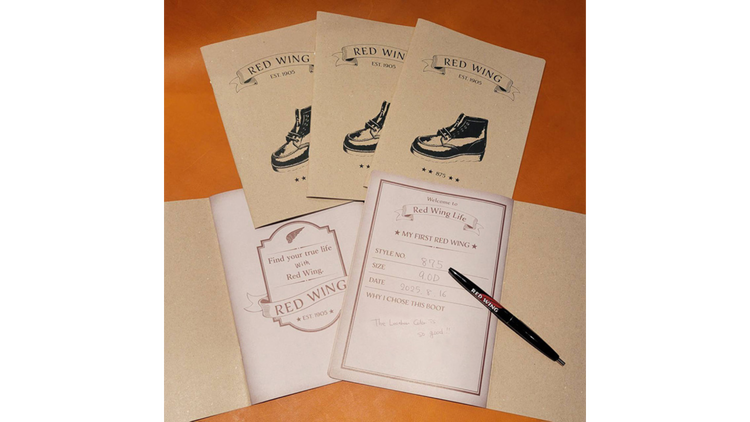 RED WING
EST. 1905
RED WING
EST. 1905
RED WING
EST. 1905
★★ 875 ★★
Find your true life
With
Red Wing.
RED WING
★ EST. 1905 ★
Welcome to
Red Wing Life
★ MY FIRST RED WING ★
STYLE NO. 875
SIZE 9.0D
DATE 2025. 5. 16
WHY I CHOSE THIS BOOT
The Leather Color is
RED WING